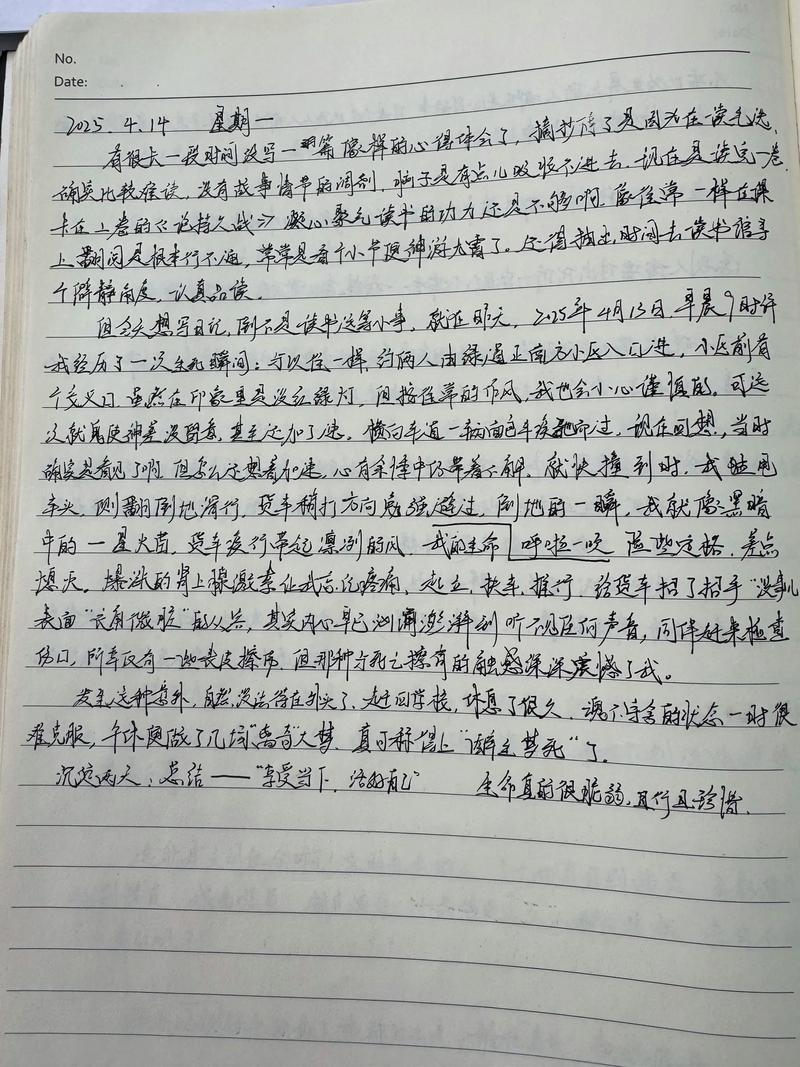 No.
Date: . .
2025.4.14 星期一
有很长一段时间没写一篇像样的心得体会了，摘抄停了是因为在读毛选，
确实比较难读，没有故事情节的调剂，脑子是有点儿吸收不进去，现在是读完一卷，
卡在上卷的《论持久战》，凝心聚气读书的功力还是不够啊，像往常一样在课
上翻阅是根本行不通，常常是看个小节便神游太霄了。还得抽出时间去读书馆寻
个僻静角度，认真品读。
但今天想写日记，倒不是读书这等小事，就在昨天，2025年4月13日，早晨9时许
我经历了一次生死瞬间：与以往一样，约俩人由绿道正南方小区入口进，小区前有
个交叉口，虽然在印象里是没红绿灯，但按往常的作风，我也会小心谨慎的。可这
次就鬼使神差没留意，甚至还加了速。横向车道一辆面包车疾驰而过，现在回想，当时
确实是看见了啊，但怎么还想着加速，心有余悸中仍带着不解。就快撞到时，我猛甩
车头，侧翻倒地滑行，货车稍打方向勉强避过，倒地的一瞬，我就像黑暗
中的一星火苗，货车疾行带起凛冽的风，我的生命呼啦一吹 险些定格，差点
熄灭。爆涨的肾上腺激素让我忘记疼痛，起立，扶车，推行，给货车招了招手“没事儿”
表面“云淡微脸”的从容，其实内心早已汹涌澎湃到听不见任何声音，同伴赶来检查
伤口，所幸仅有一些表皮擦伤，但那种与死亡擦肩的触感深深震撼了我。
发生这种意外，自然没法待在外头了，赶回学校，休息了很久，魂不守舍的状态一时很
难克服，午休便做了几场“离奇”大梦，真可称得上“醉生梦死”了。
沉淀两天，总结——“享受当下，活好自己” 生命真的很脆弱，且行且珍惜。